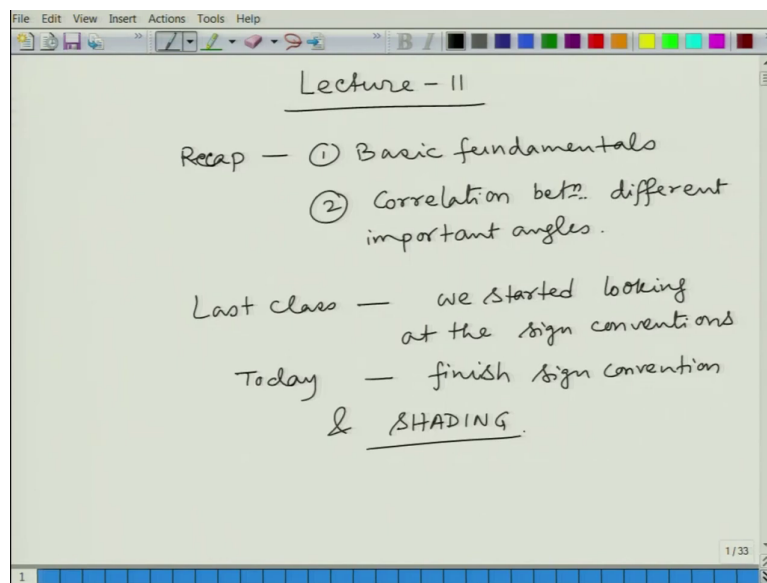 File Edit View Insert Actions Tools Help
Lecture - 11
Recap — ① Basic fundamentals
② Correlation betn. different
important angles.
Last class — we started looking
at the sign conventions
Today — finish sign convention
& SHADING.
1/33
1